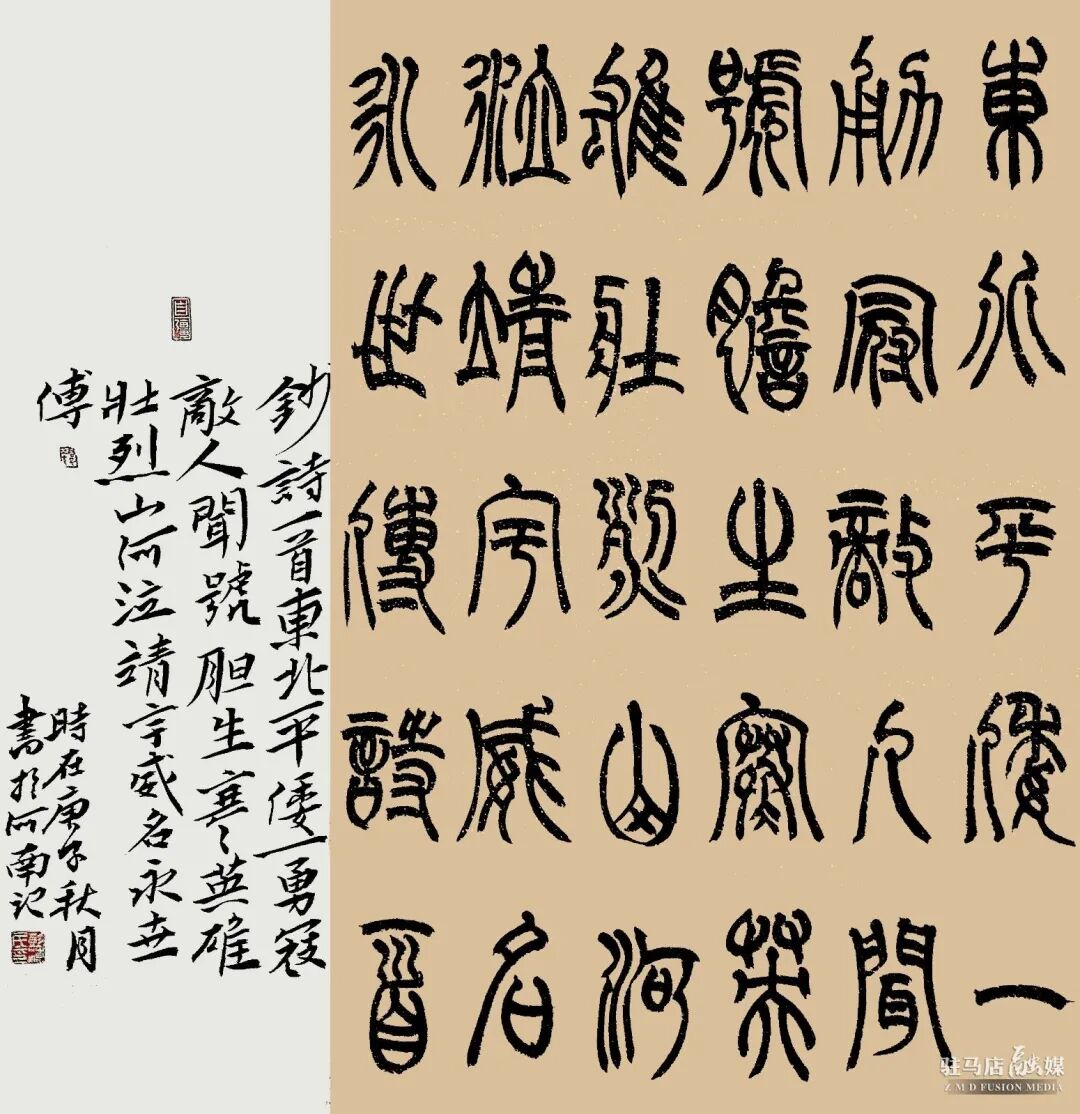 東北平倭一
勇冠敵人聞
號膽生寒英
雄壯烈山河
泣靖宇威名
永世傳詩一首
鈔詩一首東北平倭一勇冠
敵人聞號胆生寒英雄
壯烈山河泣靖宇威名永世
傳
時在庚子秋月
書於河南記
驻马店融媒
ZMD FUSION MEDIA